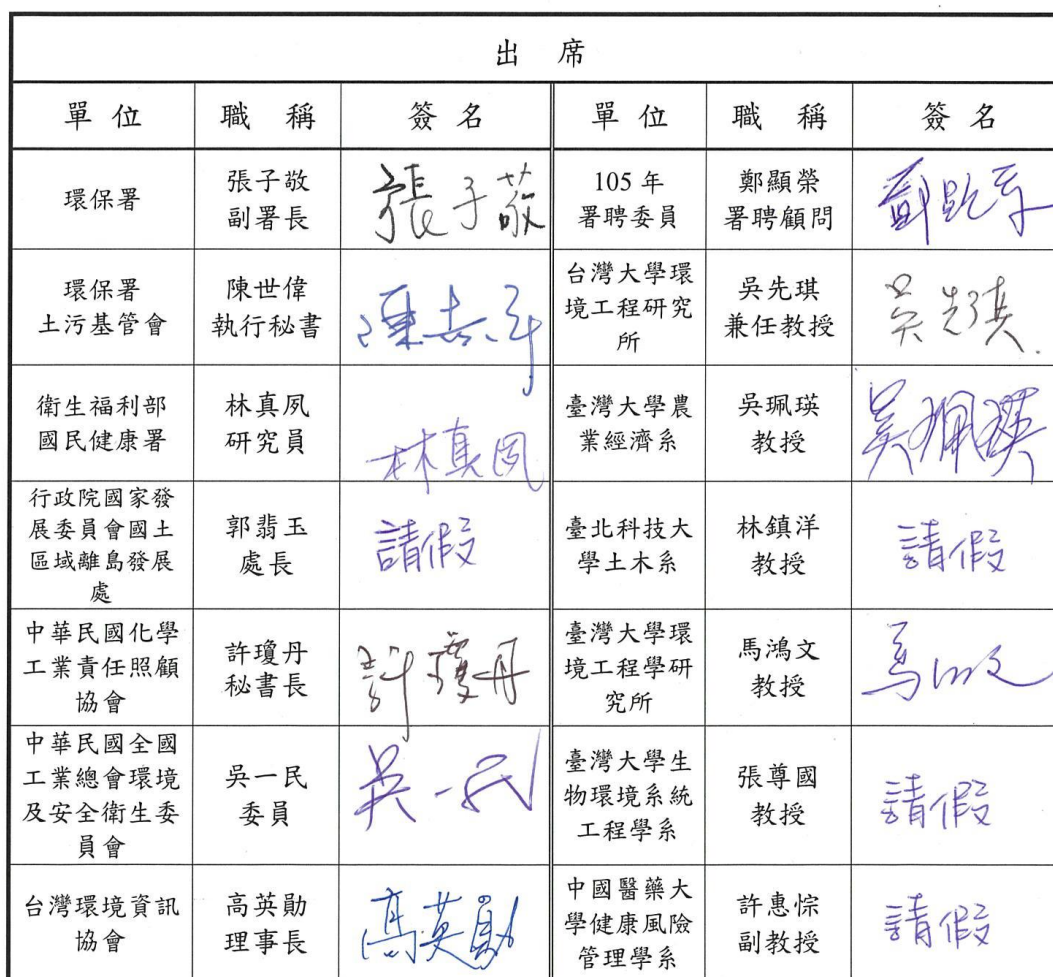 出 席
單位 職 稱 簽名 單位 職 稱 簽名
環保署
張子敬
副署長
張子敬
105 年
署聘委員
鄭顯榮
署聘顧問
環保署
土污基管會
陳世偉
執行秘書
台灣大學環
境工程研究
所
吳先琪
兼任教授
吳先琪
衛生福利部
國民健康署
林真夙
研究員
林真夙
臺灣大學農
業經濟系
吳珮瑛
教授
吳珮瑛
行政院國家發
展委員會國土
區域離島發展
處
郭翡玉
處長
請假
臺北科技大
學土木系
林鎮洋
教授
請假
中華民國化學
工業責任照顧
協會
許瓊丹
秘書長
許瓊丹
臺灣大學環
境工程學研
究所
馬鴻文
教授
馬鴻文
中華民國全國
工業總會環境
及安全衛生委
員會
吳一民
委員
吳一民
臺灣大學生
物環境系統
工程學系
張尊國
教授
請假
台灣環境資訊
協會
高英勛
理事長
高英勛
中國醫藥大
學健康風險
管理學系
許惠悰
副教授
請假